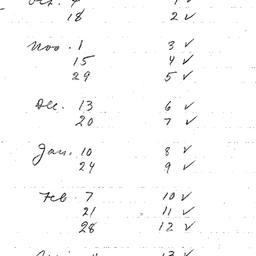 18 2 ✓
Nov. 1 3 ✓
15 4 ✓
29 5 ✓
Dec. 13 6 ✓
20 7 ✓
Jan. 10 8 ✓
24 9 ✓
Feb 7 10 ✓
21 11 ✓
28 12 ✓